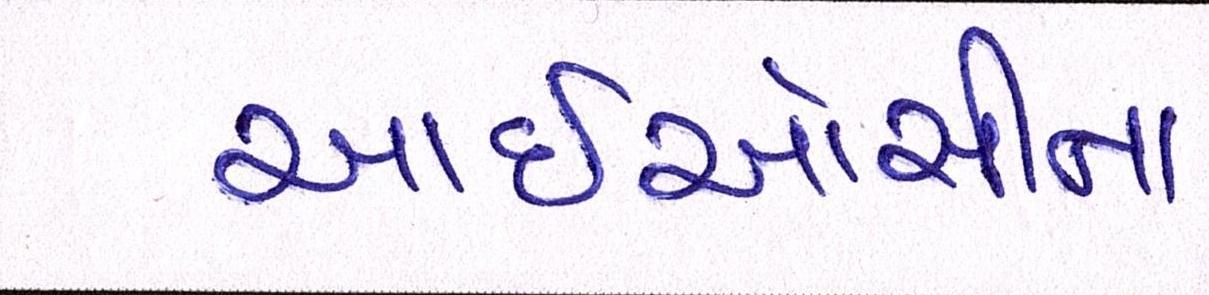 આઈઓસીના